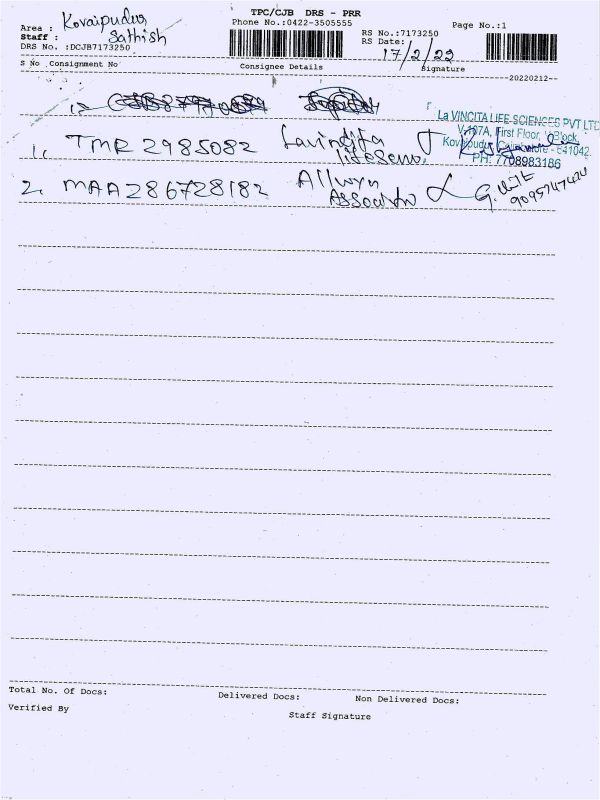 TPC/CJB DRS - PRR
Phone No.:0422-3505555
Page No.:1
Area : Kovaipudur
Staff : Sathish
DRS No. :DCJB7173250
RS No.:7173250
RS Date: 17/2/22
S No Consignment No Consignee Details Signature
--20220212--
1. TMR 2985082 Lavindita
La VINCITA LIFE SCIENCES PVT LTD
V-107A, First Floor, Block,
Kovaipudur, Coimbatore - 641042.
PH: 7708983186
2. MAA286728182 Allwyn
Total No. Of Docs: Delivered Docs: Non Delivered Docs:
Verified By Staff Signature